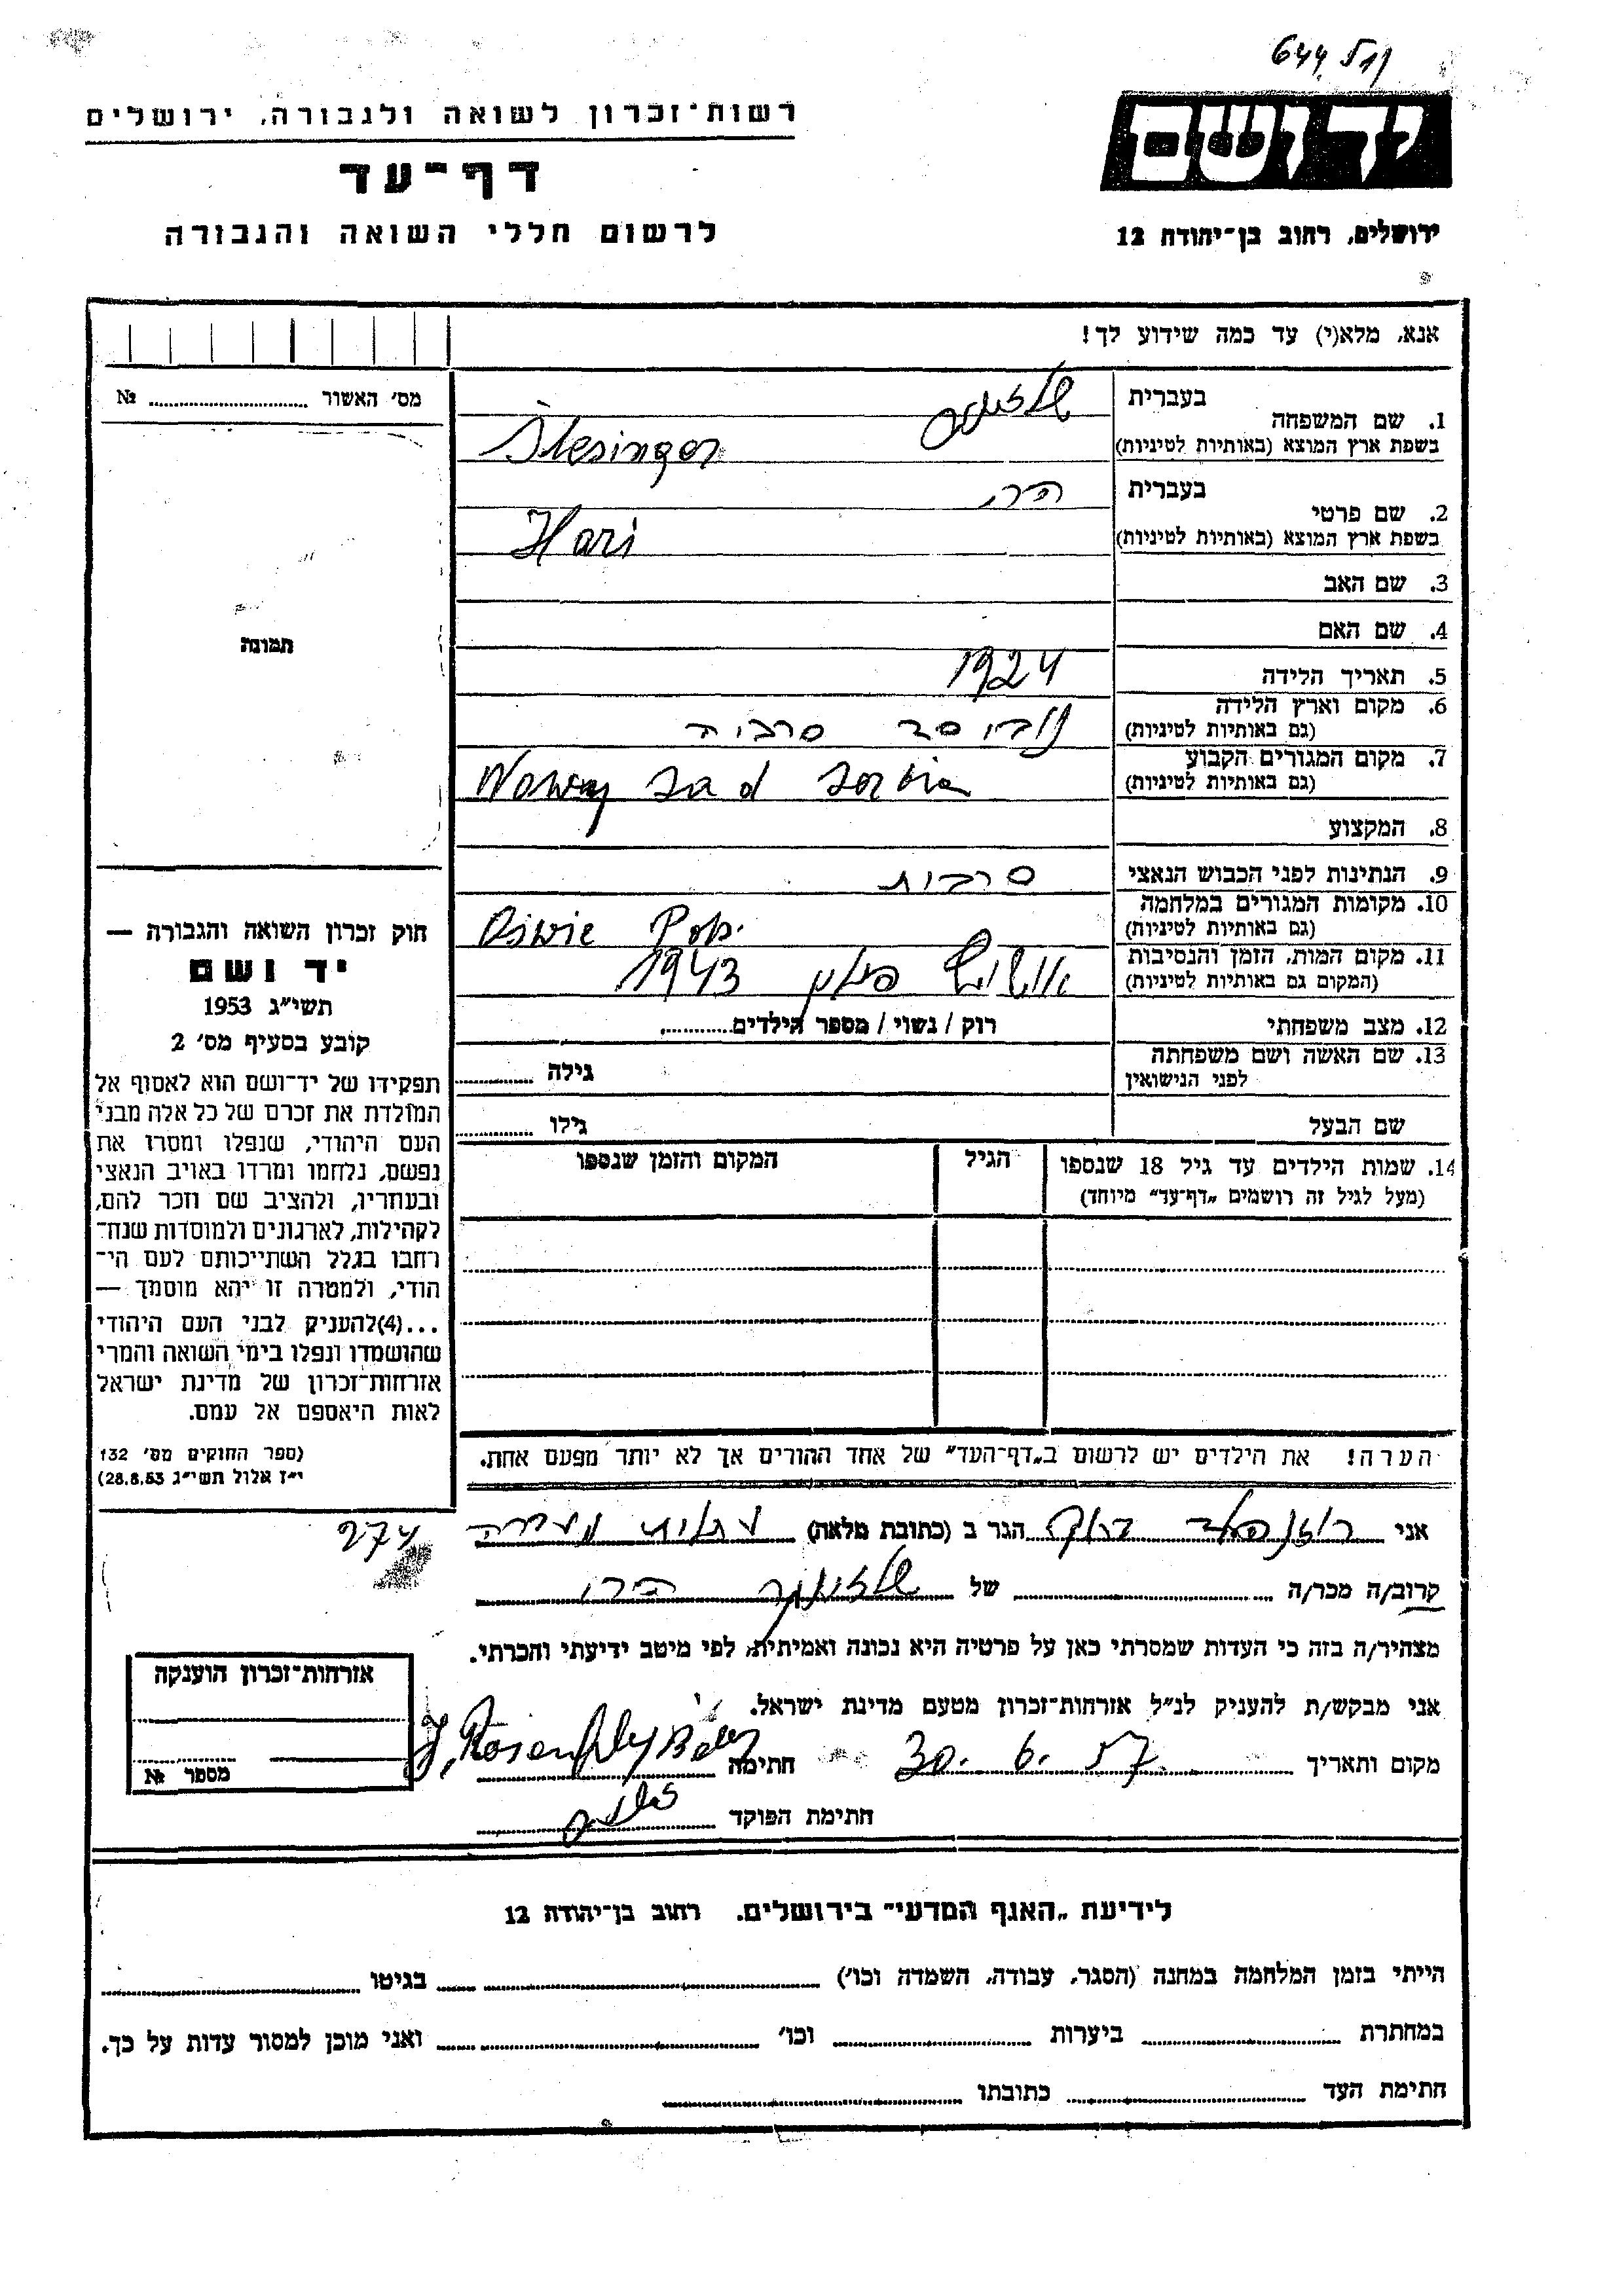 644 511
יד ושם
רשות־זכרון לשואה ולגבורה, ירושלים
דף־עד
ירושלים, רחוב בן־יהודה 12
לרשום חללי השואה והגבורה
אנא, מלא(י) עד כמה שידוע לך!
מס׳ האשור № 
1. שם המשפחה
בעברית שלזינגר
בשפת ארץ המוצא (באותיות לטיניות) Šlesinger
2. שם פרטי
בעברית הרי
בשפת ארץ המוצא (באותיות לטיניות) Hari
3. שם האב
4. שם האם
5. תאריך הלידה 1924
6. מקום וארץ הלידה
(גם באותיות לטיניות) נובי סד סרביה
7. מקום המגורים הקבוע
(גם באותיות לטיניות) Nowy Sad Serbia
8. המקצוע
9. הנתינות לפני הכבוש הנאצי סרבית
10. מקומות המגורים במלחמה
(גם באותיות לטיניות)
11. מקום המות, הזמן והנסיבות
(המקום גם באותיות לטיניות) אושויץ פולין 1943
12. מצב משפחתי רוק / נשוי / מספר הילדים
13. שם האשה ושם משפחתה
לפני הנישואין גילה
שם הבעל גילו
14. שמות הילדים עד גיל 18 שנספו
(מעל לגיל זה רושמים „דף־עד״ מיוחד)
הגיל
המקום והזמן שנספו
הערה! את הילדים יש לרשום ב„דף־העד״ של אחד ההורים אך לא יותר מפעם אחת.
תמונה
חוק זכרון השואה והגבורה —
יד ושם
תשי״ג 1953
קובע בסעיף מס׳ 2
תפקידו של יד־ושם הוא לאסוף אל
המולדת את זכרם של כל אלה מבני
העם היהודי, שנפלו ומסרו את
נפשם, נלחמו ומרדו באויב הנאצי
ובעוזריו, ולהציב שם וזכר להם,
לקהילות, לארגונים ולמוסדות שנח־
רחבו בגלל השתייכותם לעם הי־
הודי, ולמטרה זו יהא מוסמך —
...(4)להעניק לבני העם היהודי
שהושמדו ונפלו בימי השואה והמרי
אזרחות־זכרון של מדינת ישראל
לאות היאספם אל עמם.
(ספר החוקים מס׳ 132
י״ז אלול תשי״ג 28.8.53)
אני רוזנפלד הגר ב (כתובת מלאה) 274
קרוב/ה מכר/ה של שלזינגר הרי
מצהיר/ה בזה כי העדות שמסרתי כאן על פרטיה היא נכונה ואמיתית, לפי מיטב ידיעתי והכרתי.
אני מבקש/ת להעניק לנ״ל אזרחות־זכרון מטעם מדינת ישראל.
מקום ותאריך 30. 6. 57 חתימה
חתימת הפוקד
אזרחות־זכרון הוענקה
מספר №
לידיעת „האגף המדעי״ בירושלים, רחוב בן־יהודה 12
הייתי בזמן המלחמה במחנה (הסגר, עבודה, השמדה וכו׳) בגיטו
במחתרת ביערות וכו׳ ואני מוכן למסור עדות על כך.
חתימת העד כתובתו